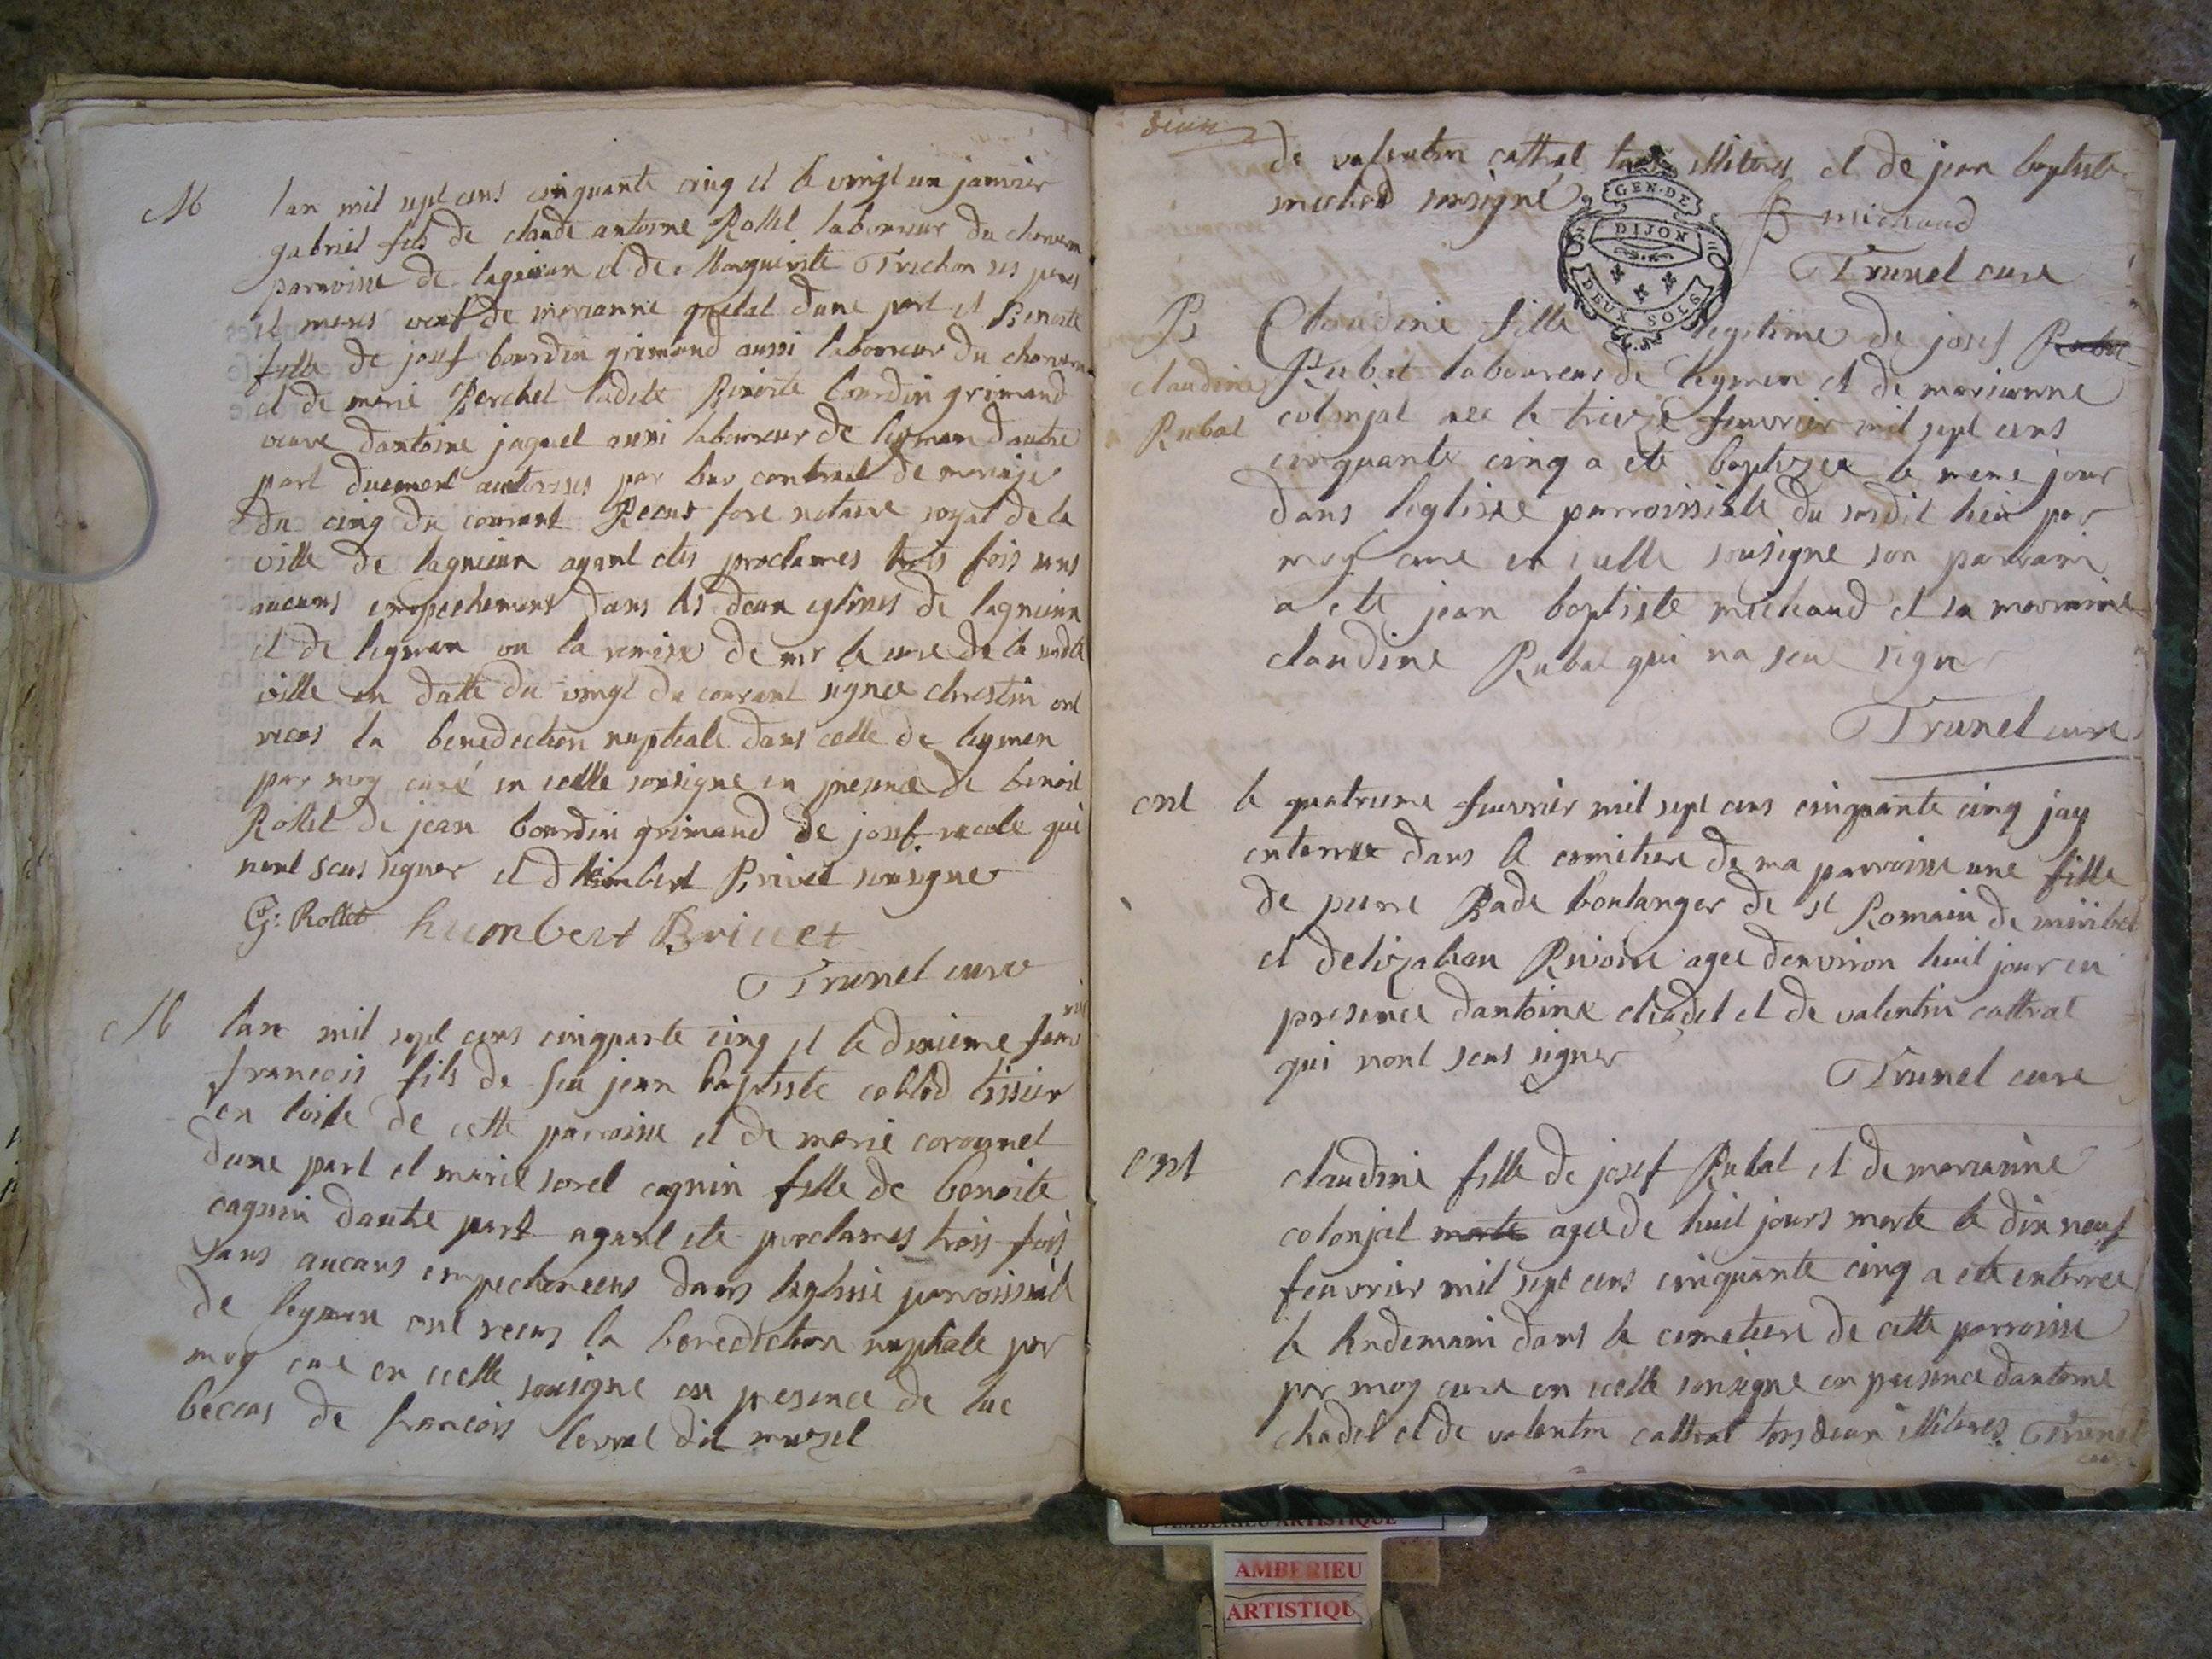 M lan mil sept cens cinquante cinq et le vingt un janvier
gabriel fils de claude antoine Rollet laboureur du
parroisse de lagnieu et de Marguerite Trichon ses peres
et meres veuf de marianne dune part et Benoite
fille de josef bourdin grimaud aussi laboureur du
et de marie Berchet ladite Benoite bourdin grimaud
veuve dantoine jaquet aussi laboureur de leymen dautre
part duement autorises par leur contrat de mariage
du cinq du courant Receus fore notaire royal de la
ville de lagnieu ayant etes proclames trois fois sans
aucuns empechement dans les deux eglises de lagnieu
et de leymen vu la remise de mr le cure de la susdite
ville en datte du vingt du courant signee chrestin ont
receus la benediction nuptiale dans celle de leymen
par moy curé en icelle sousigne en presence de benoit
Rollet de jean bourdin grimaud de josef qui
nont sceus signer et dhimbert Brivet sousigne
G: Rollet humbert Briuet
Trunel cure
M lan mil sept cens cinquante cinq et le dixieme feuvrier
francois fils de feu jean baptiste collod tissier
en toile de cette parroisse et de marie
dune part et marie sorel cagnin fille de benoite
cagnin dautre part ayant ete proclames trois fois
sans aucuns empechemens dans leglise parroissiale
de leymen ont receus la benediction nuptiale par
moy cure en icelle sousigne en presence de luc
beccas de francois dit muzel
deux
de valentin cattrat tous illiteres et de jean baptiste
michod sousigné
GEN·DE
DIJON
DEUX SOLS
JB michaud
Trunel cure
B Claudine fille legitime de josef
claudine Rubat laboureur de leymen et de marianne
Rubat colonjat nee le treize feuvrier mil sept cens
cinquante cinq a ete baptizee le meme jour
dans leglise parroissiale du susdit lieu par
moy cure en icelle sousigne son parrain
a ete jean baptiste michaud et sa marraine
claudine Rubat qui na sceu signe
Trunel cure
ent le quatrieme feuvrier mil sept cens cinquante cinq jay
enterree dans le cemetiere de ma parroisse une fille
de pierre Bade boulanger de st Romain de miribel
et delizabeau Rivoire agee denviron huit jour en
presence dantoine chadel et de valentin cattrat
qui nont sceus signer
Trunel cure
ent claudine fille de josef Rubat et de marianne
colonjat morte agee de huit jours morte le dix neuf
feuvrier mil sept cens cinquante cinq a ete enterree
le lendemain dans le cemetiere de cette parroisse
par moy cure en icelle sousigne en presence dantoine
chadel et de valentin cattrat tous deux illiteres Trunel
cure
AMBERIEU ARTISTIQUE
AMBERIEU
ARTISTIQU